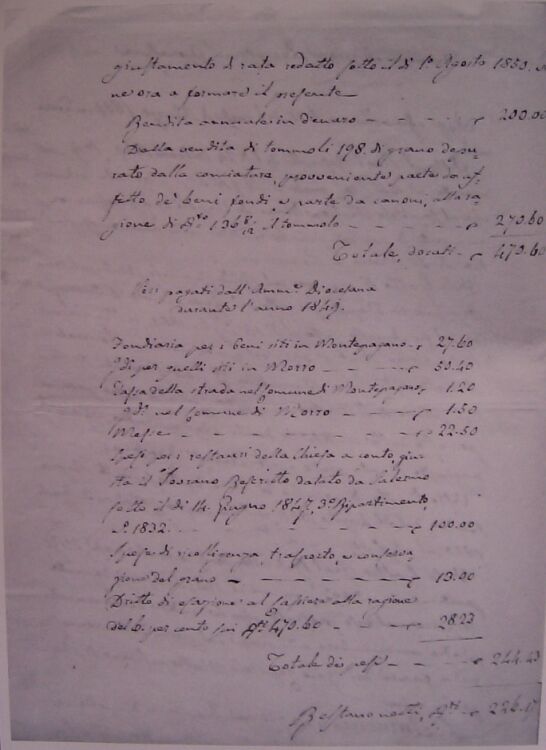 giustamento di rata redatto sotto il dì 1º Agosto 1850.
ne ora a formare il presente
Rendita annuale in denaro — — — — — 200.00
Dalla vendita di tommoli 198. di grano depu-
rato dalla conciatura, proveniente parte da af-
fitto de' beni fondi, e parte da canoni, alla ra-
gione di il tommolo — — — — 270.60
Totale, docati — 470.60
Pesi pagati dall'Ammne Diocesana
durante l'anno 1849.
Fondiaria per i beni siti in Montepagano — 27.60
Idm per quelli siti in Morro — — — 50.40
Tassa della strada nel Comune di Montepagano, 1.20
Idm nel Comune di Morro — — — 1.50
Messe — — — — — 22.50
Spesi per i restauri della Chiesa a conto, giu-
sta il Sovrano Rescritto datato da Salerno
sotto il dì 14. Giugno 1847, 3º Ripartimento,
Nº 1832. — — — — — 100.00
Spese di raccoglienza, trasporto, e conserva-
zione del grano — — — — — 13.00
Dritto di esazione al Cassiere alla ragione
del 6. per cento sui 470.60 — — — 28.23
Totale dei pesi — — — 244.43
Restano netti, — 226.17